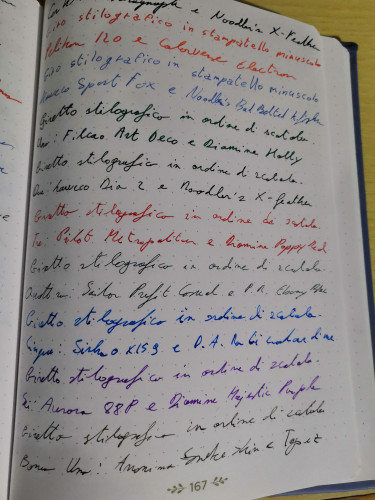 e Noodler's X-Feather
Giro stilografico in stampatello minuscolo
Pelikan 120 e Colorverse Electron
Giro stilografico in stampatello minuscolo
Kaweco Sport Fox e Noodler's Bad Belted
Giretto stilografico in ordine di scatola.
Uno: Filcao Art Deco e Diamine Holly
Giretto stilografico in ordine di scatola.
Due: Kaweco Dia 2 e Noodler's X-feather
Giretto stilografico in ordine di scatola.
Tre: Pilot Metropolitan e Diamine Poppy Red
Giretto stilografico in ordine di scatola.
Quattro: Sailor Profit Casual e P.R. Ebony
Giretto stilografico in ordine di scatola.
Cinque: X159 e D.A.
Giretto stilografico in ordine di scatola.
Sei: Aurora 88P e Diamine Majestic Purple
Giretto stilografico in ordine di scatola
Bonus Uno: Anonima e Topaz
167